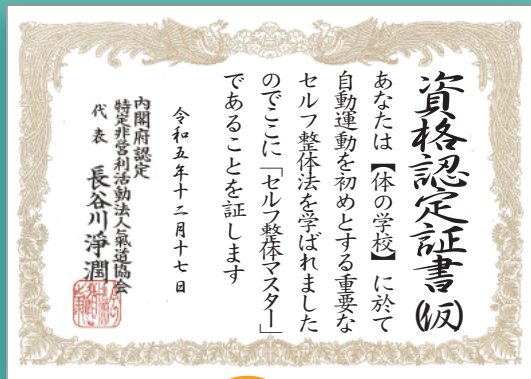 資格認定証書(仮)
あなたは【体の学校】に於て
自動運動を初めとする重要な
セルフ整体法を学ばれました
のでここに「セルフ整体マスター」
であることを証します
令和五年十二月十七日
内閣府認定
特定非営利活動法人氣道協会
代表 長谷川淨潤